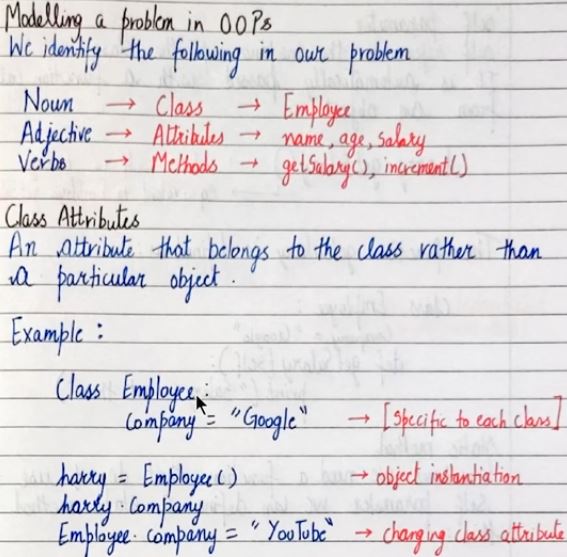 Modelling a problem in OOPs
We identify the following in our problem
Noun → Class → Employee
Adjective → Attributes → name, age, Salary
Verbs → Methods → getSalary(), increment()
Class Attributes
An attribute that belongs to the class rather than
a particular object.
Example :
Class Employee:
Company = "Google" → [Specific to each class]
harry = Employee() → object instantiation
harry.Company
Employee.company = "YouTube" → changing class attribute